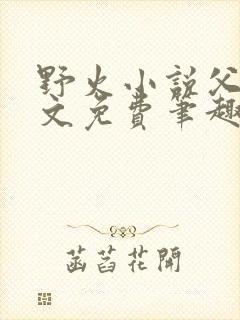 野火小説父
文免費筆趣
菡萏花開